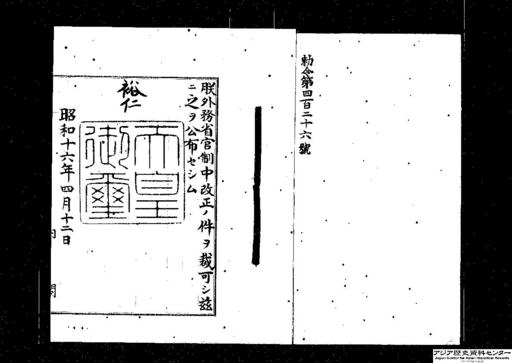 勅令第四百二十六號
朕外務省官制中改正ノ件ヲ裁可シ茲
ニ之ヲ公布セシム
裕仁
天皇
御璽
昭和十六年四月十二日
内閣
アジア歴史資料センター
Japan Center for Asian Historical Records